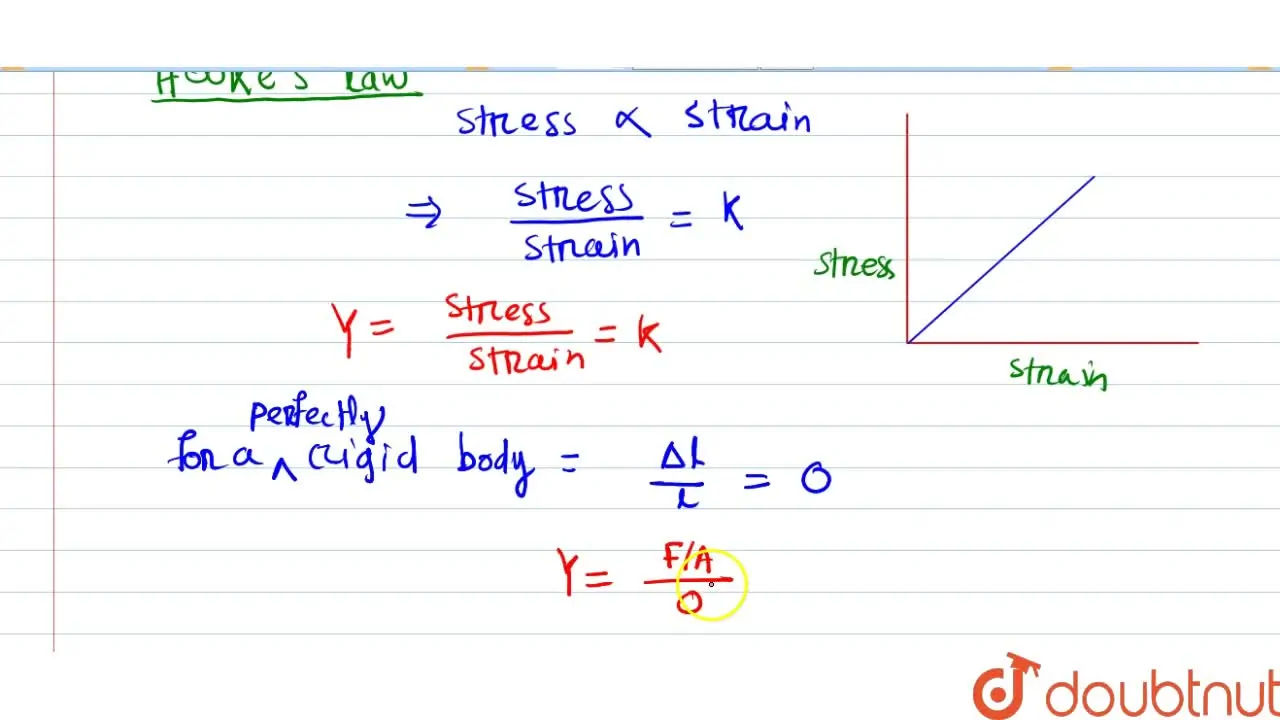 Hooke's Law
Stress ∝ Strain
⇒ Stress/Strain = K
Y = Stress/Strain = K
Stress
Strain
perfectly
for a ^ rigid body = ΔL/L = 0
Y = F/A/0
doubtnut